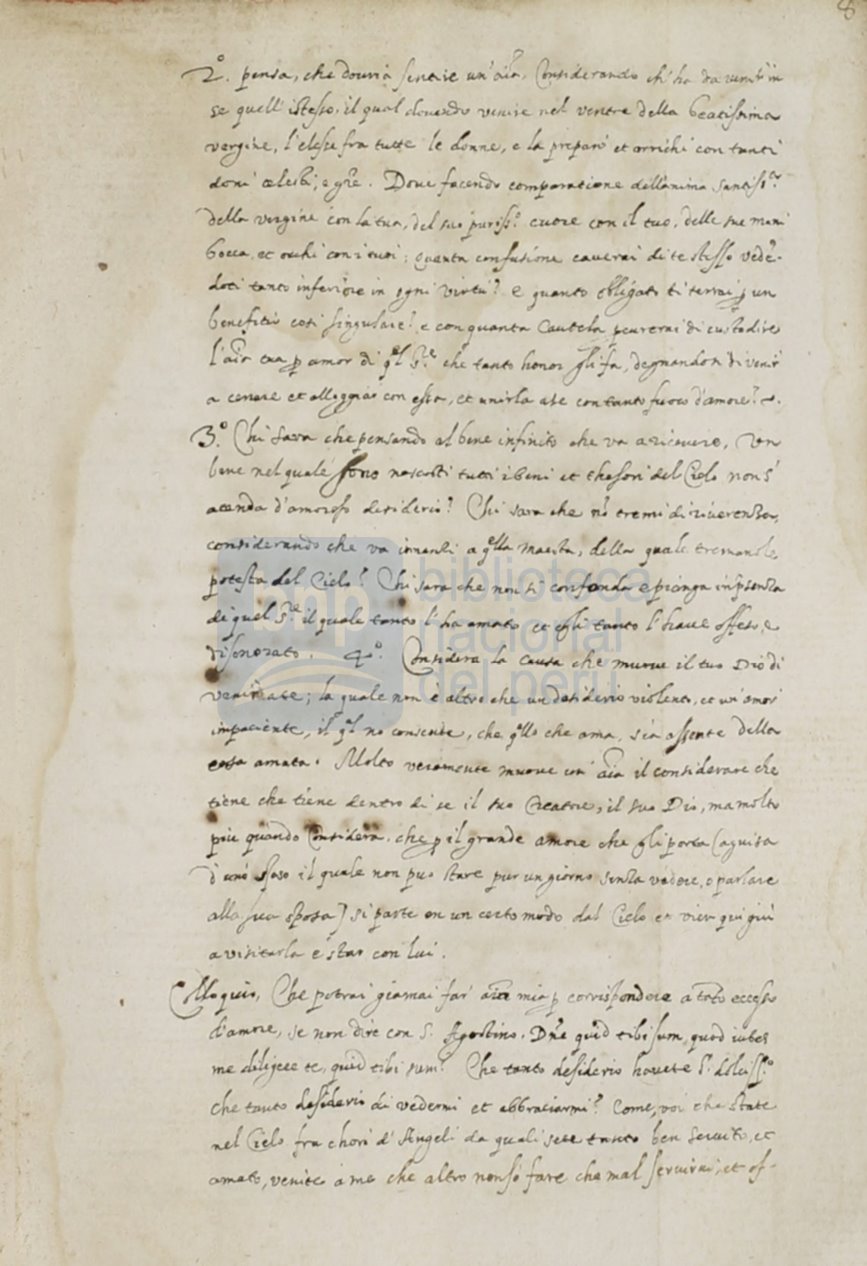 8
2.° pensa, che douria sentire un'aīa, Considerando ch'ha da venir in
se quell'istesso, il qual douendo venire nel ventre della beatissima
vergine, l'elesse fra tutte le donne, e la preparò et arrichì con tanti
doni celesti, e gre. Doue facendo comparatione dell'anima santiss.a
della vergine con la tua, del suo puriss.o cuore con il tuo, delle sue mani
bocca, et occhi con i tuoi; Quanta confusione cauerai di te stesso vedē-
doti tanto inferiore in ogni virtù? e quanto obligato ti terrai p un
benefitio così singulare? e con quanta cautela procurerai di custodire
l'aīa tua p amor di ql S.re che tanto honor gli fa, degnandosi di venir
a cenare et alloggiar con essa, et unirla a se con tanto fuoco d'amore?
3.° Chi sarà che pensando al bene infinito che va a riceuere, Un
bene nel quale sono nascosti tutti i beni et thesori del Cielo non s'
acenda d'amoroso desiderio? Chi sara che nō tremi di riuerenza,
considerando che va innanti a qlla Maestà, della quale tremano le
potestà del Cielo? Chi sara che non si confonda e pianga in psenza
di quel S.re il quale tanto l'ha amato et egli tanto l'haue offeso, e
disonorato. 4.° Considera la causa che muoue il tuo Dio di
venir a te; la quale non è altro che un desiderio violento, et un'amor
impaciente, il ql nō consente, che qllo che ama, sia assente della
cosa amata. Molto veramente muoue un' aīa il considerare che
tiene che tiene dentro di se il suo Creatore, il suo Dio, ma molto
piu quando Considera, che p il grande amore che gli porta (a guisa
d'uno sposo il quale non puo stare pur un giorno senza vedere, o parlare
alla sua sposa) si parte in un certo modo dal Cielo et vien qui giù
a visitarla e star con lui.
Colloquio, Che potrai giamai far aīa mia p corrispondere a tāto eccesso
d'amore, se non dire con S. Agostino. Dn̄e quid tibi sum, quod iubes
me diligere te, quid tibi sum? Che tanto desiderio hauete S.r dolciss.o
che tanto desiderio di vedermi et abbraciarmi? Come, voi che state
nel Cielo fra chori d'Angeli da quali sete tanto ben seruito, et
amato, venite a me che altro non sò fare che mal seruirui, et of-
biblioteca
nacional
del perú
bnp